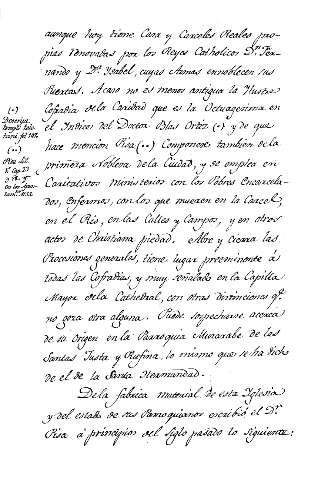 aunque hoy tiene Casa y Carceles Reales pro-
pias renovadas por los Reyes Catholicos Dn. Fer-
nando y Dª. Isabel, cuyas Armas ennoblecen sus
Puertas. Acaso no es menos antigua la Ilustre
Cofradia de la Caridad que es la Octuagesima en
el Indice del Doctor Blas Ortiz (•) y de que
hace mencion Pisa (••) Componese tambien de la
primera Nobleza de la Ciudad, y se emplea en
Caritativos ministerios con los Pobres Encarcela-
dos, Enfermos, con los que mueren en la Carcel,
en el Rio, en las Calles y Campos, y en otros
actos de Christiana piedad. Abre y cierra las
Procesiones generales, tiene lugar preeminente á
todas las Cofradias, y muy señalado en la Capilla
Mayor de la Cathedral, con otras distinciones qe.
no goza otra alguna. Puede sospecharse acerca
de su origen en la Parroquia Muzarabe de las
Santas Justa y Rufina, lo mismo que se ha dicho
de el de la Santa Hermandad.
De la fabrica material de esta Iglesia
y del estado de sus Parroquianos escribió el Dr.
Pisa á principios del siglo pasado lo siguiente:
(•)
(••)